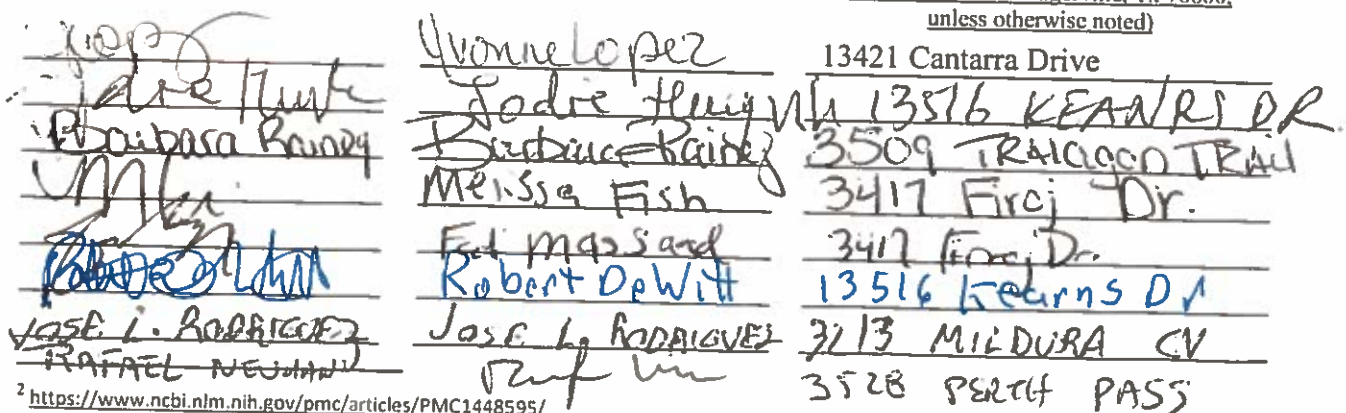 unless otherwise noted)
Yvonne Lopez 13421 Cantarra Drive
Jodie Huynh 13516 KEANRS DR
Barbara Rainey Barbara Rainey 3509 TRALAGON TRAIL
Melissa Fish 3417 Firoj Dr.
Massand 3417 Firoj Dr.
Robert DeWitt 13516 Kearns Dr
JOSE L. RODRIGUEZ JOSE L. RODRIGUEZ 3213 MILDURA CV
RAFAEL NEUMANN 3528 PERTH PASS
2 https://www.ncbi.nlm.nih.gov/pmc/articles/PMC1448595/